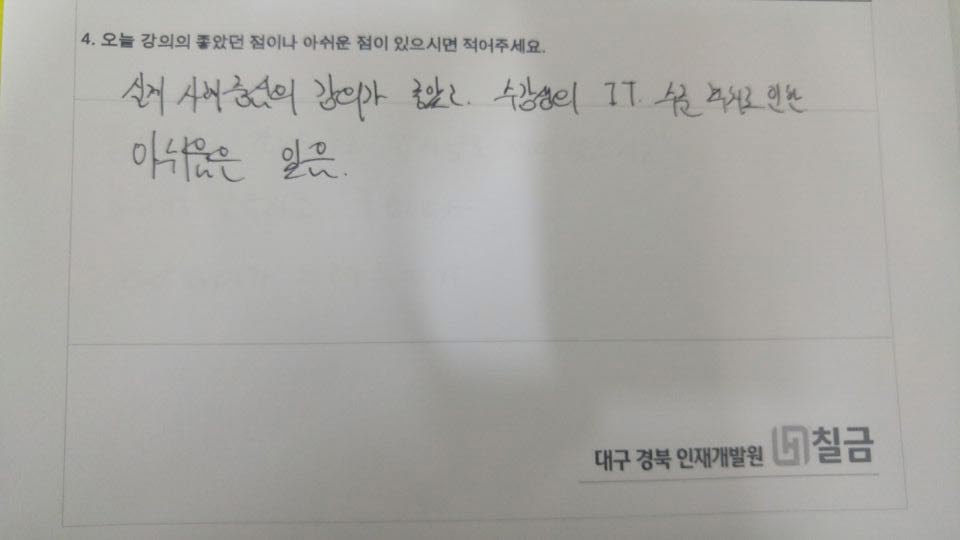 4. 오늘 강의의 좋았던 점이나 아쉬운 점이 있으시면 적어주세요.
실제 사례중심의 강의가 좋았고. 수강생의 IT. 수준 차이로 인한
아쉬움은 있음.
대구 경북 인재개발원 칠금